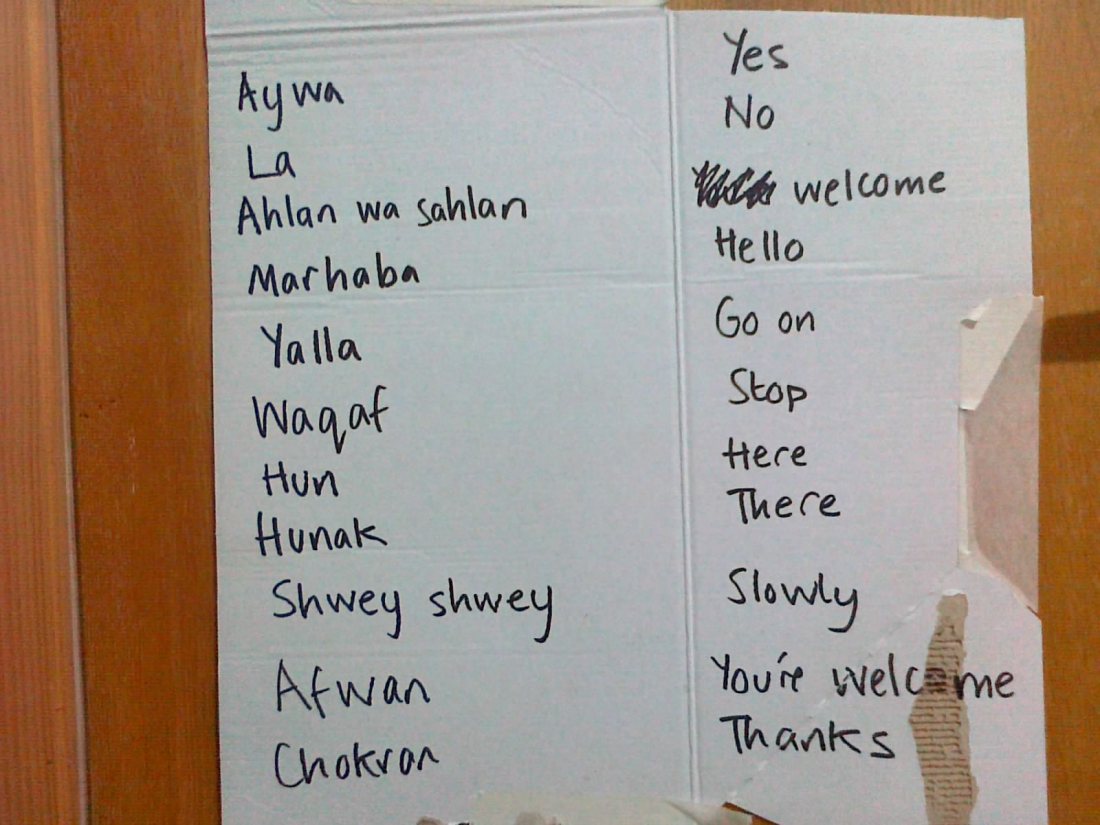 Aywa Yes
La No
Ahlan wa sahlan welcome
Marhaba Hello
Yalla Go on
Waqaf Stop
Hun Here
Hunak There
Shwey shwey Slowly
Afwan You're welcome
Chokran Thanks